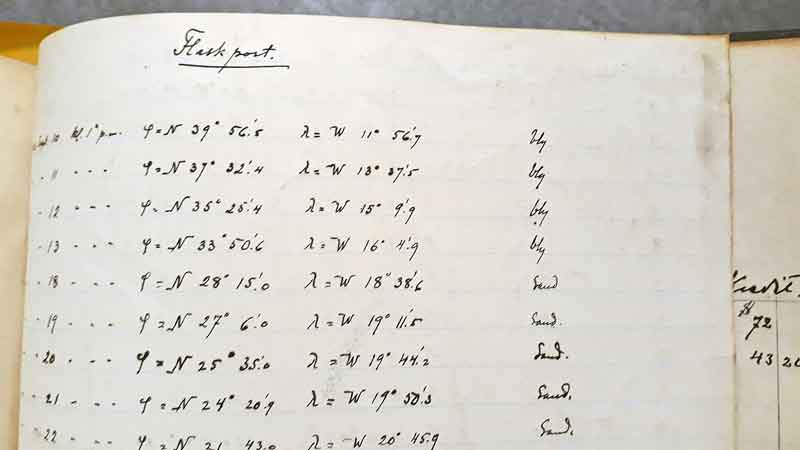 Flaskpost.
Sept. 10 kl. 1° p.m. φ = N 39° 56'.5 λ = W 11° 56'.7 bly
" 11 " " " φ = N 37° 32'.4 λ = W 13° 37'.5 bly
" 12 " " " φ = N 35° 25'.4 λ = W 15° 9'.9 bly
" 13 " " " φ = N 33° 50'.6 λ = W 16° 4'.9 bly
" 18 " " " φ = N 28° 15'.0 λ = W 18° 38'.6 Sand
" 19 " " " φ = N 27° 6'.0 λ = W 19° 11'.5 Sand.
" 20 " " " φ = N 25° 35'.0 λ = W 19° 44'.2 Sand.
" 21 " " " φ = N 24° 20'.9 λ = W 19° 50'.3 Sand.
" 22 φ = N 21 43.0 λ = W 20° 45.9 Sand.
Kredit.
72
43 20